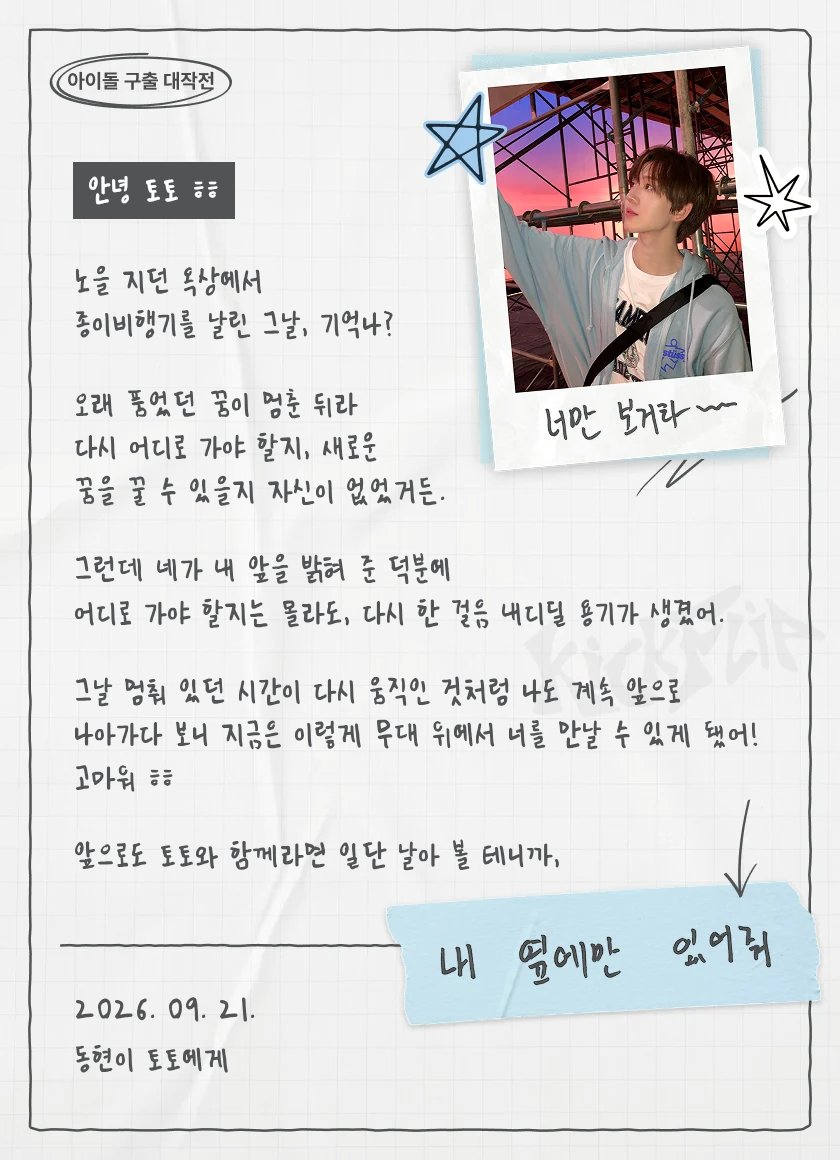 아이돌 구출 대작전
안녕 토토 ㅎㅎ
너만 보거라~~
노을 지던 옥상에서
종이비행기를 날린 그날, 기억나?
오래 품었던 꿈이 멈춘 뒤라
다시 어디로 가야 할지, 새로운
꿈을 꿀 수 있을지 자신이 없었거든.
그런데 네가 내 앞을 밝혀 준 덕분에
어디로 가야 할지는 몰라도, 다시 한 걸음 내디딜 용기가 생겼어.
KickFlip
그날 멈춰 있던 시간이 다시 움직인 것처럼 나도 계속 앞으로
나아가다 보니 지금은 이렇게 무대 위에서 너를 만날 수 있게 됐어!
고마워 ㅎㅎ
앞으로도 토토와 함께라면 일단 날아 볼 테니까,
내 옆에만 있어줘
2026. 09. 21.
동현이 토토에게